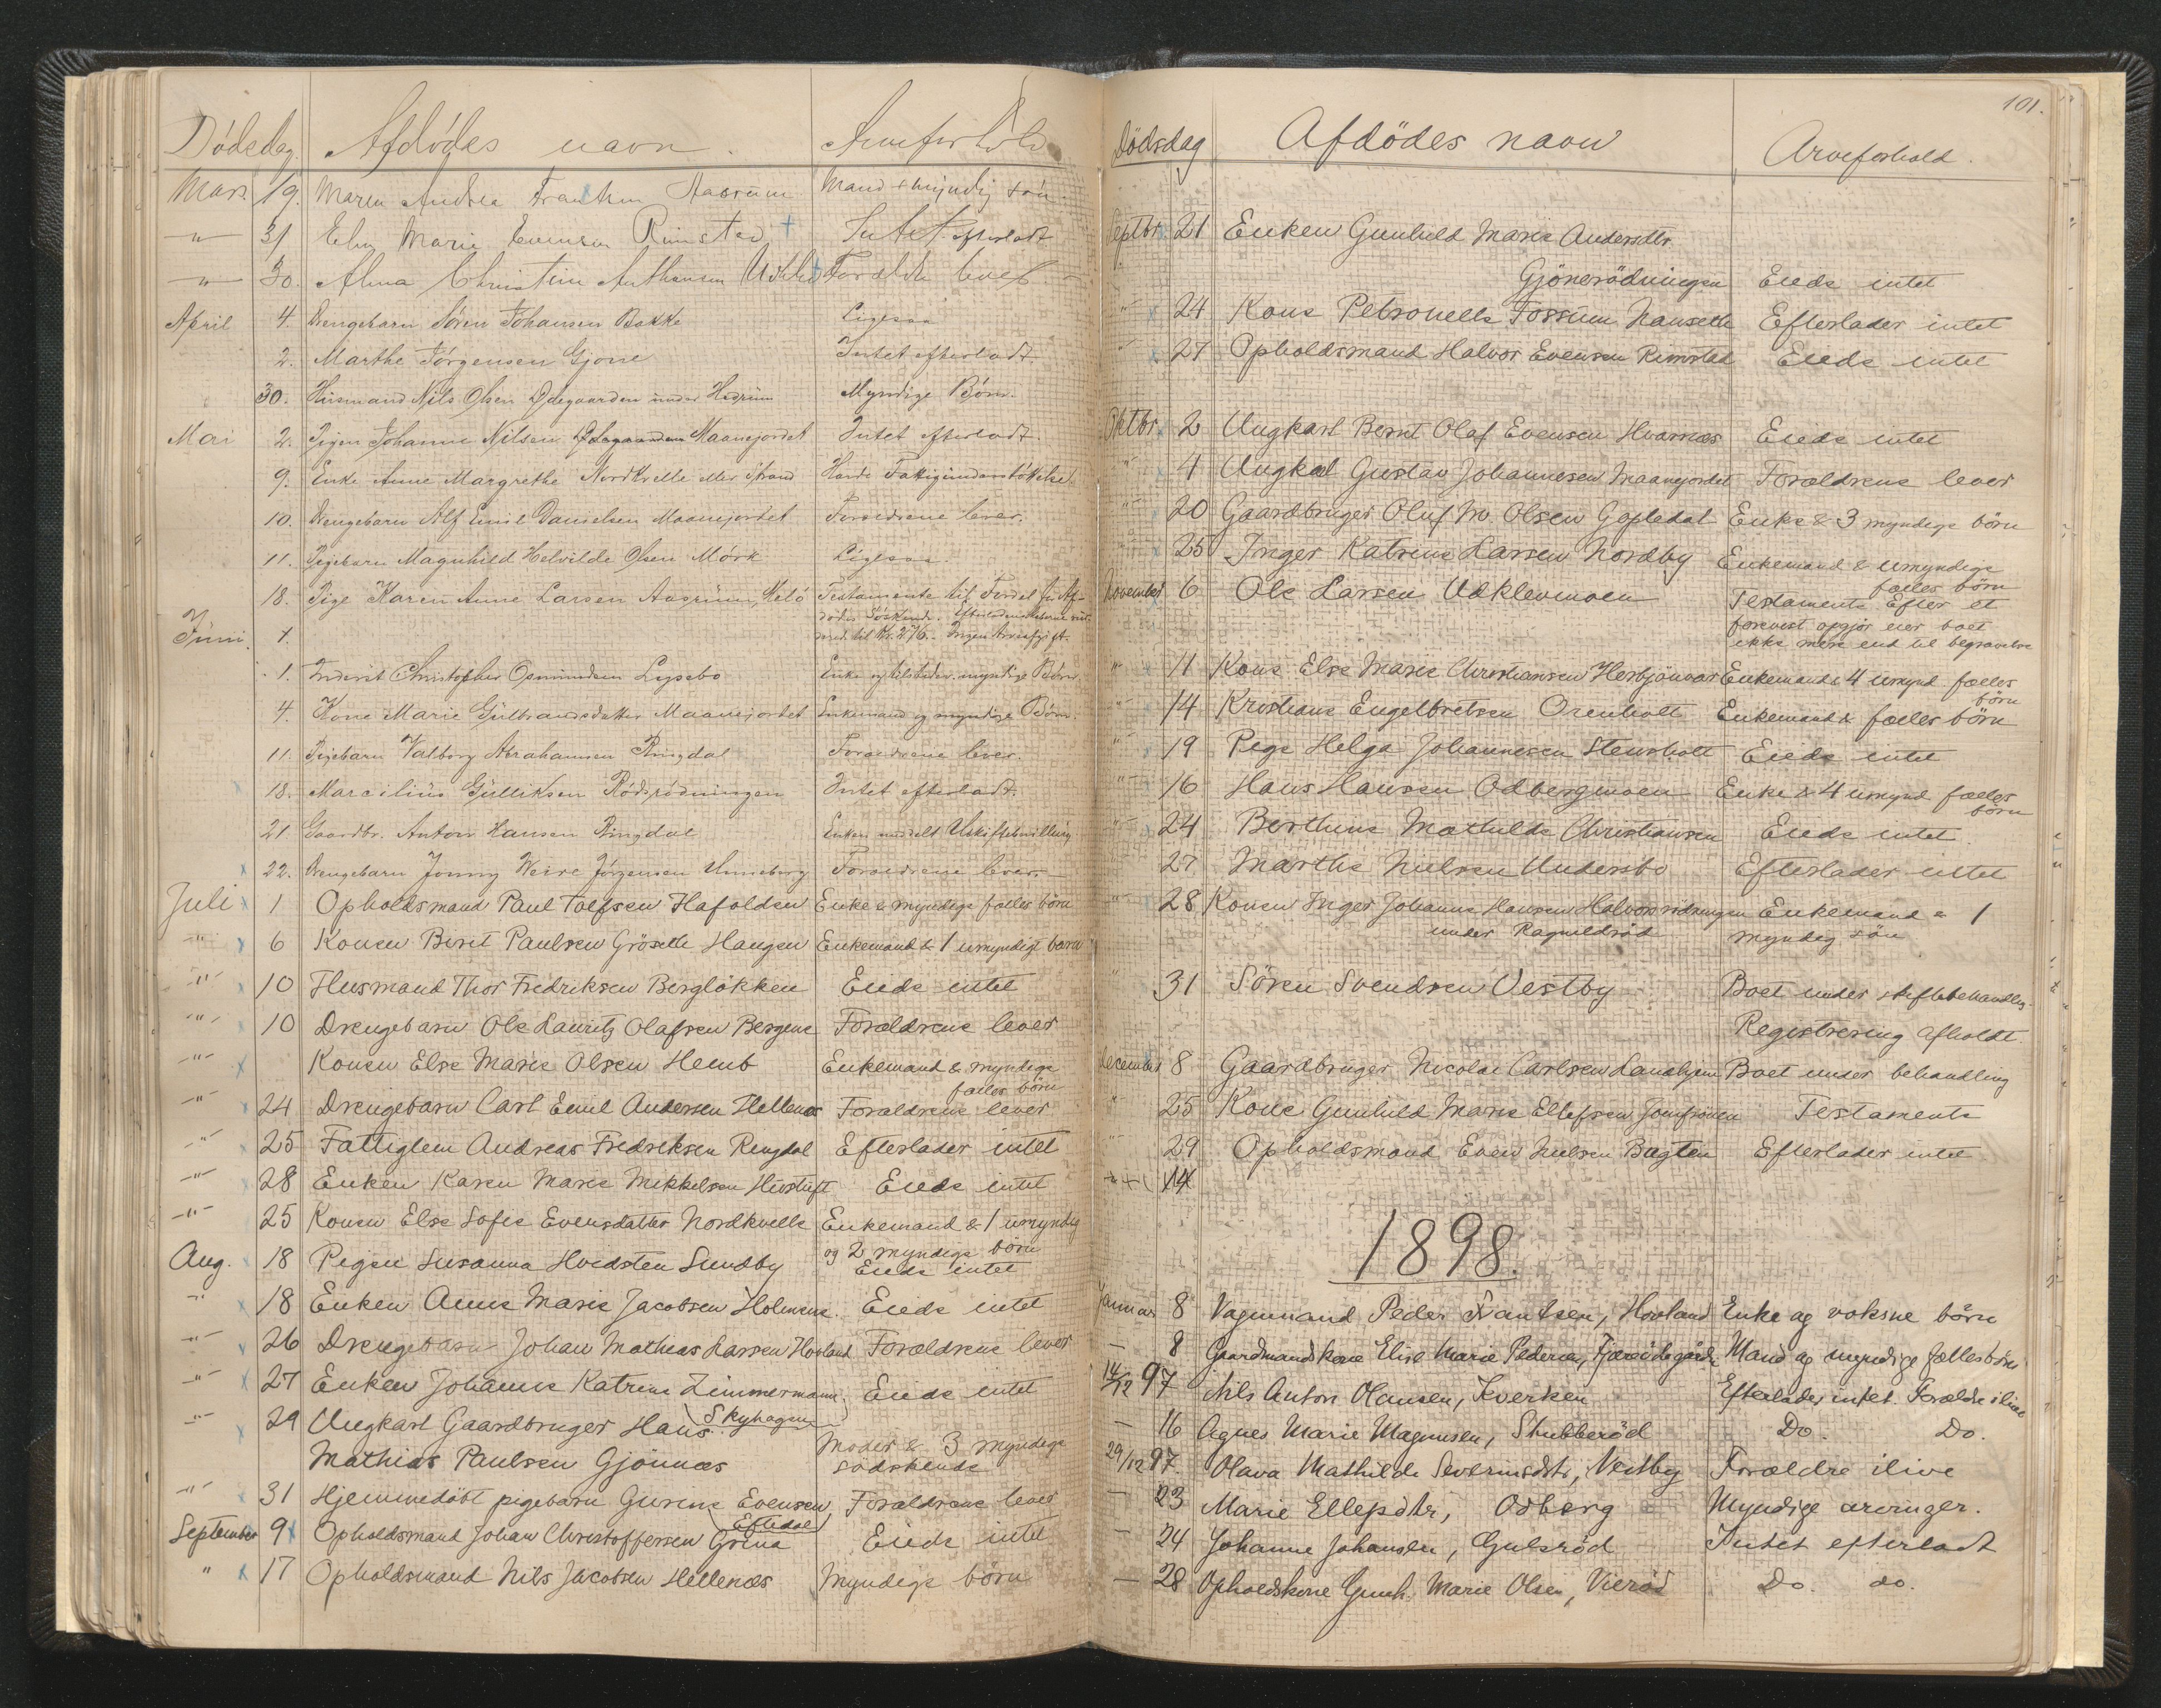 Dödsdag. Afdödes navn. Arveforhold
Mars. 19. Maren Andrea Aasrum Mand & myndig sön
" 31 Marie Evensen Rimstad Intet efterladt
" 30. Alma Christine Anthonsen Foreldre lever
April 4. Drengebarn Sören Johansen Bakke Ligesaa
2. Marthe Jörgensen Gjone Intet efterladt.
30. Husmand Nils Olsen Ödegaarden under Hedrum Myndige Börn.
Mai 2. Pigen Johanne Nilsen Maanejordet Intet efterladt
9. Enke Anne Margrethe Nordkvelle eller Strand Havde Fattigunderstöttelse.
10. Drengebarn Alf Emil Danielsen Maanejordet Foreldrene lever.
11. Pigebarn Magnhild Helvilde Olsen Mörk Ligesaa.
18. Pige Karen Anne Larsen Aasrum, Melö Testamente til Fordel for Af-
dödes Söskende.
Juni. 1. til Kr. 276.- Ingen Arveafgift.
1. Inderst Christopher Opmundsen Lysebo Enke og tilstede. myndige Börn.
4. Kone Marie Gulbrandsdatter Maanejordet Enkemand og myndige Börn.
11. Pigebarn Valborg Abrahamsen Ringdal Foreldrene lever.
18. Marcilius Gulliksen Rödsrödningen Intet efterladt.
21. Gaardbr. Anton Hansen Ringdal Enken meddelt Uskiftebevilling
22. Drengebarn Jonny Weire Jörgensen Unneberg Foreldrene lever.
Juli 1 Opholdsmand Paul Tolfsen Hafalden Enke & myndige fælles börn
" 6 Konen Berit Paulsen Gröselle Haugen Enkemand & 1 umyndigt barn
" 10 Husmand Thor Fredriksen Berglökken Eiede intet
" 10 Drengebarn Ole Lauritz Olafsen Bergene Forældrene lever
" Konen Else Marie Olsen Hemb Enkemand & myndige
fælles börn
" 24 Drengebarn Carl Emil Andersen Hellenæs Forældrene lever
" 25 Fattiglem Andreas Fredriksen Ringdal Efterlader intet
" 28 Enken Karen Marie Mikkelsen Hvistuft Eiede intet
" 25 Konen Else Sofie Evensdatter Nordkvelle Enkemand & 1 umyndig
og 2 myndige börn
Aug. 18 Pigen Susanna Hvidsten Sundby Eiede intet
" 18 Enken Anne Marie Jacobsen Holmene. Eiede intet
" 26 Drengebarn Johan Mathias Larsen Hovland Forældrene lever
" 27 Enken Johanne Katrine Zimmermann, Eiede intet
Skyhagen
" 29 Ungkarl Gaardbruger Hans
Mathias Paulsen Gjönnæs Moder & 3 myndige
södskende
" 31 Hjemmedöbt pigebarn Gurine Evensen Forældrene lever
Eftedal
September 9 Opholdsmand Johan Christoffersen Grina Eiede intet
" 17 Opholdsmand Nils Jacobsen Hellenæs Myndige börn
101.
Dödsdag Afdödes navn Arveforhold.
Septbr. 21 Enken Gunhild Marie Andersdtr.
Gjönerödningen Eiede intet
" 24 Kone Petronelle Fossum Hanselle Efterlader intet
" 27 Opholdsmand Halvor Evensen Rimstad Eiede intet
Oktbr. 2 Ungkarl Bernt Olaf Evensen Hvarnæs Eiede intet
" 4 Ungkarl Gustav Johannesen Maanejordet Forældrene lever
" 20 Gaardbruger Oluf M. Olsen Gopledal Enke & 3 myndige börn
" 25 Inger Katrine Larsen Nordby Enkemand & umyndige
fælles börn
November 6 Ole Larsen Udklevmoen Testamente Efter et
forevist opgjör eier boet
ikke mere end til begravelse
" 11 Kone Else Marie Christiansen Herbjönrød Enkemand & 4 umynd. fælles
börn
" 14 Kristiane Engelbretsen Orenholt Enkemand & fælles börn
" 19 Pige Helga Johannesen Stensholt Eiede intet
" 16 Hans Hansen Odbergmoen Enke & 4 umynd. fælles
börn
" 24 Berthine Mathilde Christiansen Eiede intet.
27 Marthe Nielsen Undersbo Efterlader intet
" 28 Konen Inger Johanne Hansen Halvorsrödningen Enkemand & 1
under Ragnildröd myndig sön
" 31 Sören Svendsen Vestby Boet under skiftebehandling.
Registrering afholdt.
December 8 Gaardbruger Nicolai Carlsen Landhjem Boet under behandling
" 25 Kone Gunhild Marie Ellefsen Jomfruen Testamente
" 29 Opholdsmand Even Nielsen Bugten Efterlader intet
14
1898.
Januar 8 Vognmand Peder Frantsen, Hovland Enke og voksne börn
8 Gaardmandskone Elise Marie Pedersen, Mand og myndige fællesbörn
14/12 97 Nils Anton Olausen, Kverken Efterlader intet. Forældre ilive
16 Agnes Marie Magnusen, Stubberöd Do. Do.
29/12 97. Olava Mathilde Severinsdtr, Vestby Forældre ilive
23 Marie Ellefsdtr, Odberg Myndige arvinger.
24 Johanne Johansen, Gulsröd Intet efterladt
28 Opholdskone Gunh. Marie Olsen, Vieröd Do. do.